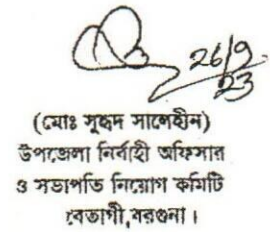 26/9
23
(মোঃ সুহৃদ সালেহীন)
উপজেলা নির্বাহী অফিসার
ও সভাপতি নিয়োগ কমিটি
বেতাগী,বরগুনা।